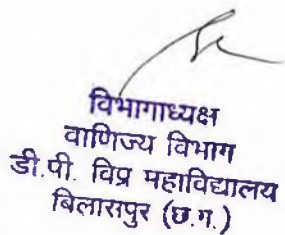 विभागाध्यक्ष
वाणिज्य विभाग
डी.पी. विप्र महाविद्यालय
बिलासपुर (छ.ग.)